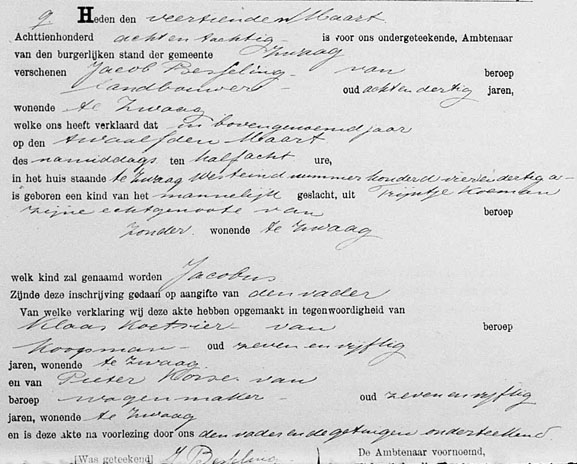 9 Heden den veertienden Maart
Achttienhonderd acht en tachtig is voor ons ondergeteekende, Ambtenaar
van den burgerlijken stand der gemeente Zwaag
verschenen Jacob Besseling van beroep
landbouwer oud acht en dertig jaren,
wonende te Zwaag
welke ons heeft verklaard dat in bovengenoemd jaar
op den twaalfden Maart
des namiddags ten half acht ure,
in het huis staande te Zwaag Westeind nummer honderd vier en dertig a
is geboren een kind van het mannelijk geslacht, uit Trijntje Koeman
zijne echtgenoote van beroep
zonder wonende te Zwaag
welk kind zal genaamd worden Jacobus
Zijnde deze inschrijving gedaan op aangifte van den vader
Van welke verklaring wij deze akte hebben opgemaakt in tegenwoordigheid van
Klaas van beroep
Koopman oud zeven en vijftig
jaren, wonende te Zwaag
en van Pieter van
beroep wagenmaker oud zeven en vijftig
jaren, wonende te Zwaag
en is deze akte na voorlezing door ons den vader en de getuigen onderteekend.
[Was geteekend] J Besseling De Ambtenaar voornoemd,